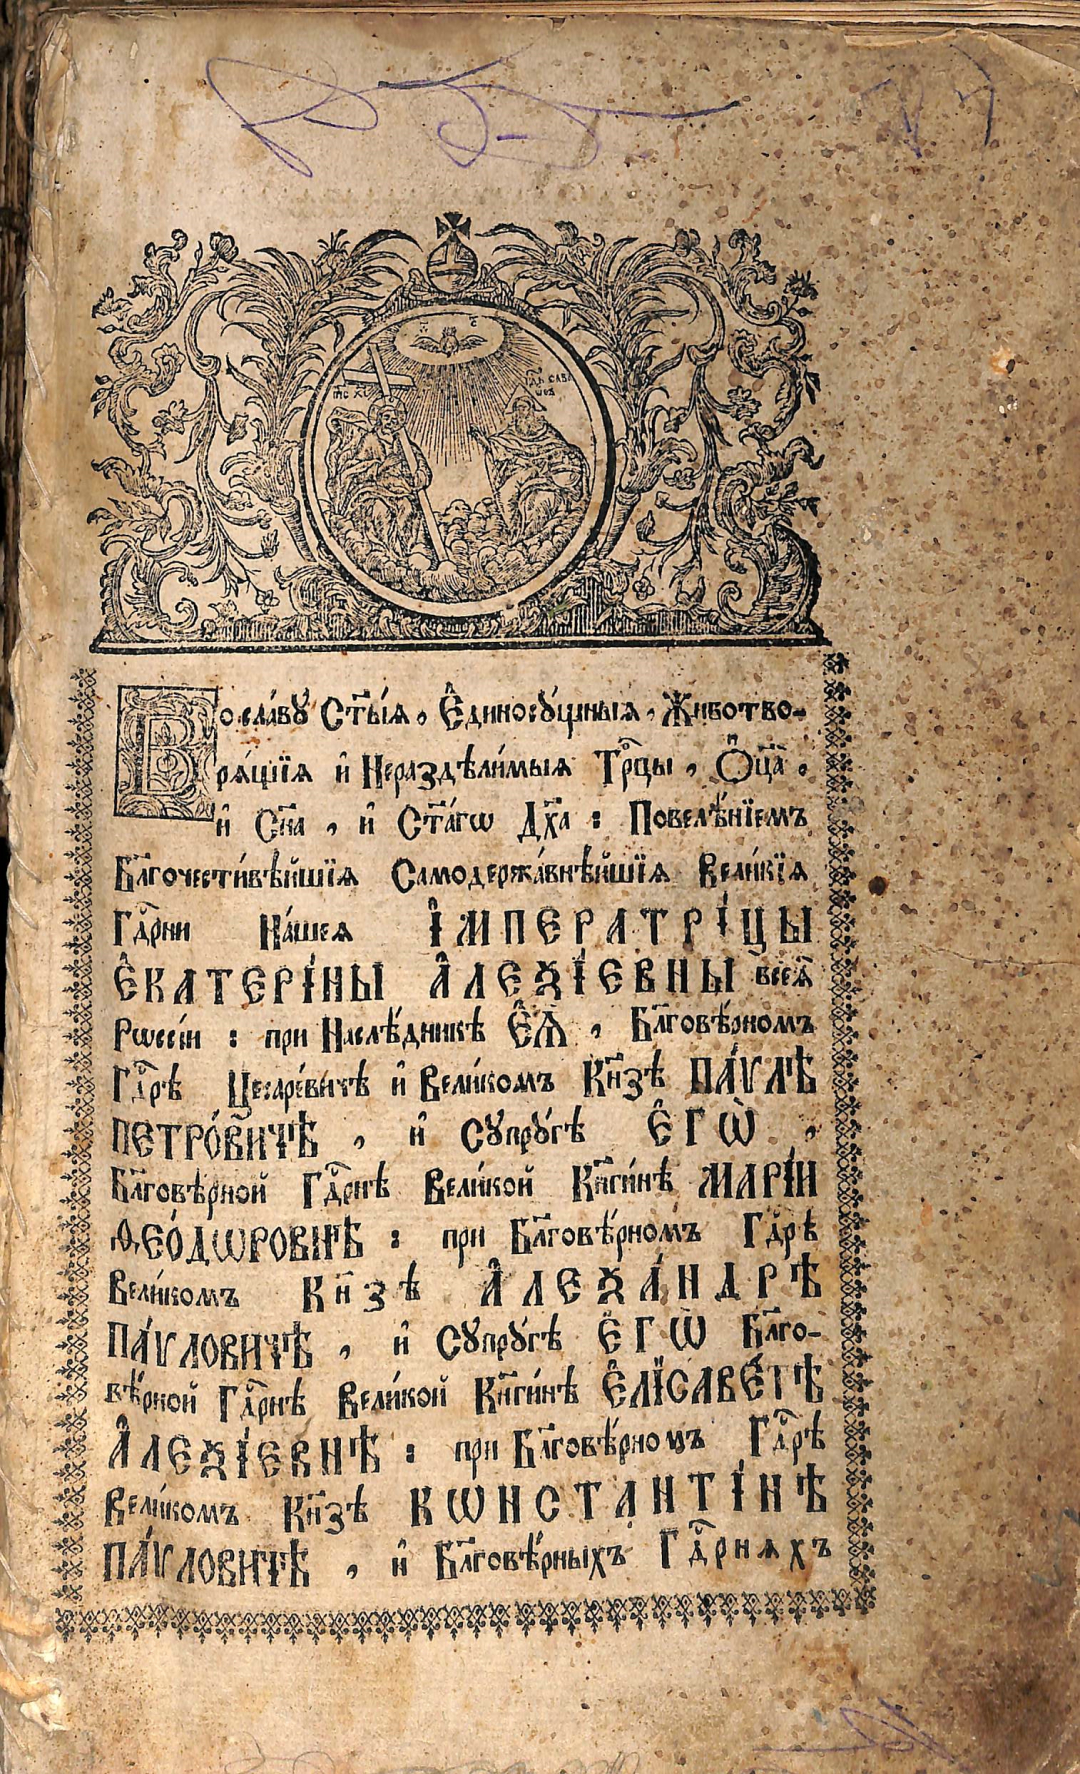 І҃С ХС
Гдь Сава
ѡѳъ
Во сла́вꙋ Ст҃ы́ѧ, Є҆диносꙋ́щныѧ, Животво-
рѧ́щїѧ и҆ Нераздѣли́мыѧ Трⷪ҇цы, Ѻ҆ц҃а̀,
и҆ Сн҃а, и҆ Ст҃а́гѡ Дх҃а: Повелѣ́нїемъ
Бл҃гочести́вѣйшїѧ Самодержа́внѣйшїѧ Вели́кїѧ
Гдⷭ҇рни На́шеѧ І҆МПЕРАТРІ́ЦЫ
Е҆КАТЕРІ́НЫ А҆ЛЕѮІ́ЕВНЫ всеѧ̀
Рѡссі́и: при Наслѣ́дникѣ Е҆Ѧ̀, Бл҃говѣ́рномъ
Гдⷭ҇рѣ Цесаре́вичѣ и҆ Вели́комъ Кн҃зѣ ПА́ѴЛѢ
ПЕТРО́ВИЧѢ, и҆ Сꙋпрꙋ́гѣ Е҆ГѠ̀,
Бл҃говѣ́рной Гдⷭ҇рнѣ Вели́кой Кн҃ги́нѣ МАРІ́И
Ѳ҆ЕО́ДѠРОВНѢ: при Бл҃говѣ́рномъ Гдⷭ҇рѣ
Вели́комъ Кн҃зѣ А҆ЛЕѮА́НДРѢ
ПА́ѴЛОВИЧѢ, и҆ Сꙋпрꙋ́гѣ Е҆ГѠ̀ Бл҃го-
вѣ́рной Гдⷭ҇рнѣ Вели́кой Кн҃ги́нѣ Е҆ЛІСАВЕ́ТѢ
А҆ЛЕѮІ́ЕВНѢ: при Бл҃говѣ́рномъ Гдⷭ҇рѣ
Вели́комъ Кн҃зѣ КѠНСТАНТІ́НѢ
ПА́ѴЛОВИЧѢ, и҆ Бл҃говѣ́рныхъ Гдⷭ҇рнѧхъ